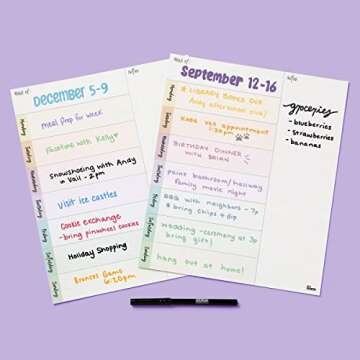 Week of:
Notes:
December 5-9
Monday
meal prep for week
Tuesday
Facetime with Kelly
Wednesday
Snowshoeing with Andy
in Vail - 2pm
Thursday
Visit ice castles
Friday
Cookie exchange
- bring pinwheel cookies
Saturday
Holiday Shopping
Sunday
Broncos Game
6:20pm
Week of:
Notes:
September 12-16
Monday
LIBRARY BOOKS DUE
Andy afternoon
Tuesday
vet appointment
1:30pm
Wednesday
BIRTHDAY DINNER
with BRIAN
Thursday
paint bathroom/hallway
family movie night
Friday
BBQ with neighbors - 7p
bring chips + dip
Saturday
wedding - ceremony at 3p
bring gift!
Sunday
hang out at home!
groceries
- blueberries
- strawberries
- bananas